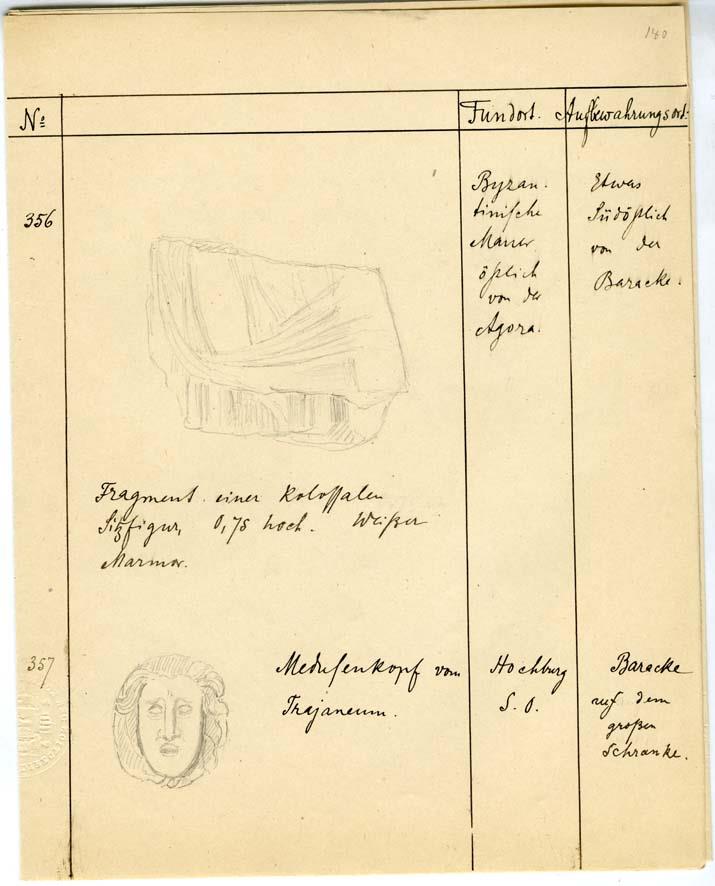 140
No Fundort. Aufbewahrungsort.
356
Byzan-
tinische
Mauer
östlich
von der
Agora.
Etwas
Südöstlich
von der
Baracke.
Fragment einer kolossalen
Sitzfigur, 0,75 hoch. Weißer
Marmor.
357
Medusenkopf vom
Trajaneum.
Hochburg
S. O.
Baracke
auf dem
großen
Schranke.